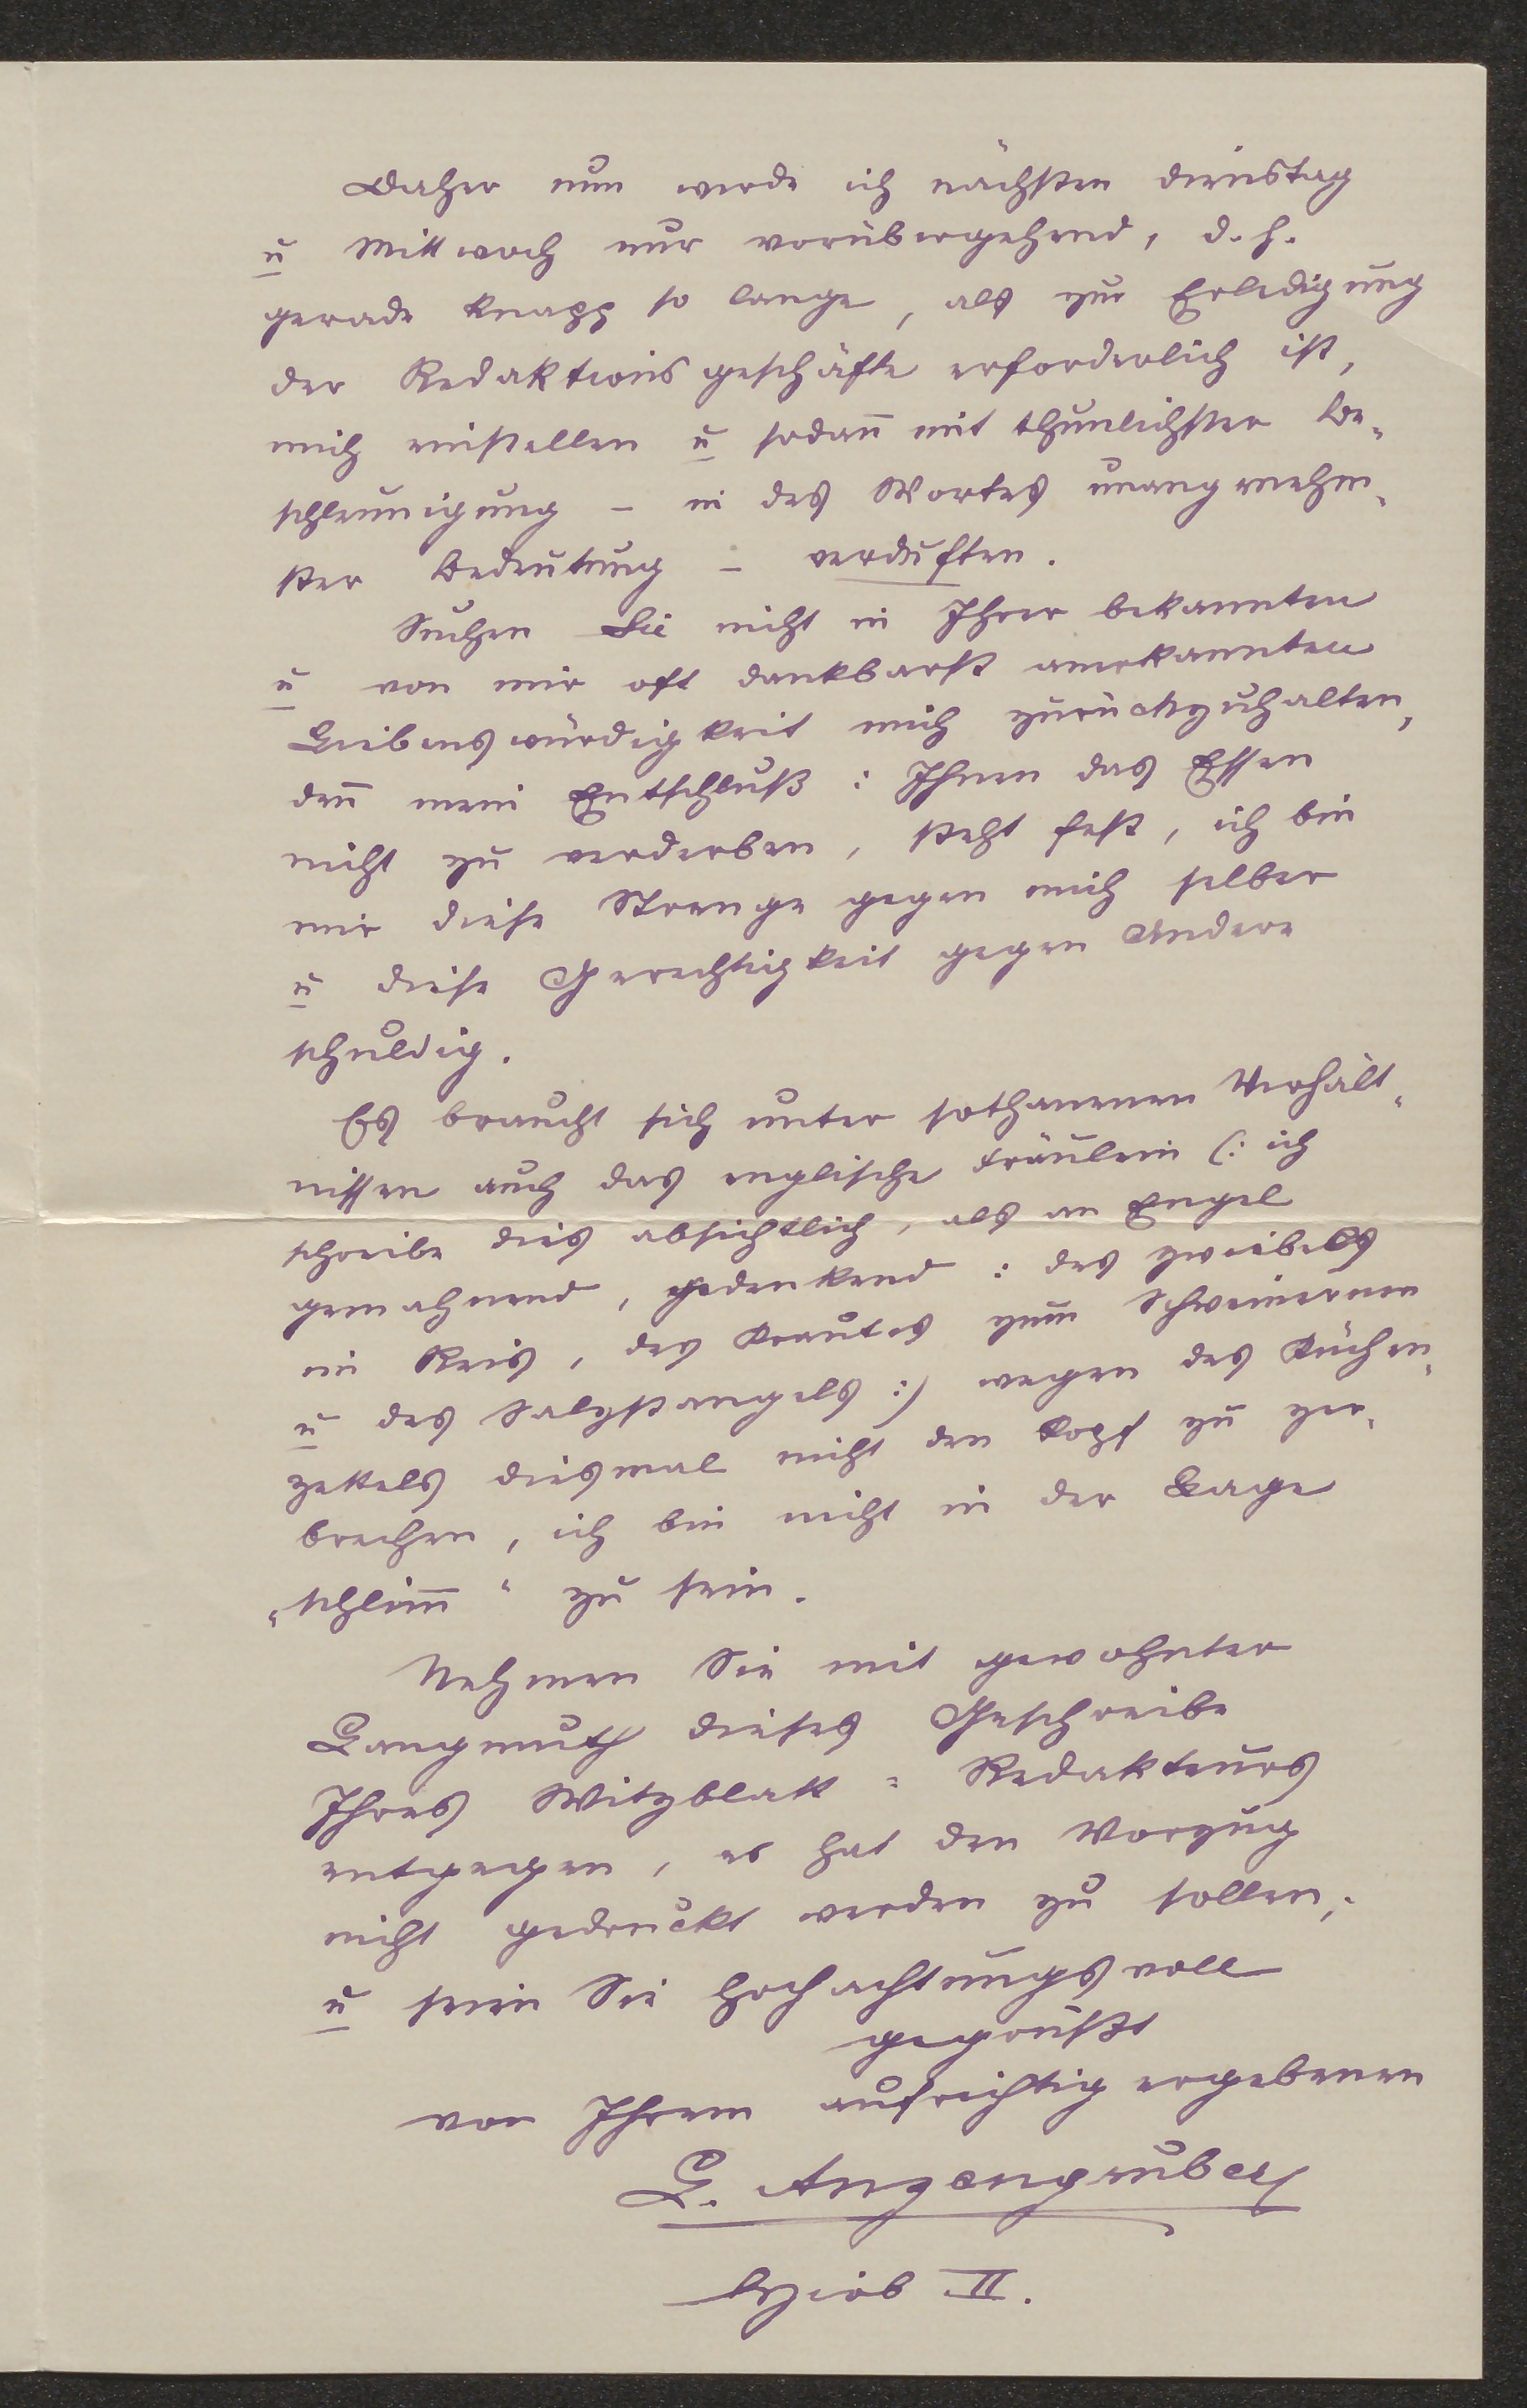 Daher nun werde ich nächsten Dienstag
u Mittwoch nur vorübergehend, d. h.
gerade knapp so lange, als zur Erledigung
der Redaktionsgeschäfte erforderlich ist,
mich einstellen u sodan̄ mit thunlichster Be-
schleunigung – in des Wortes unangenehm-
ster Bedeutung – verduften.
Suchen Sie nicht in Ihrer bekannten
u von mir oft dankbarst anerkannten
Liebenswürdigkeit mich zurückzuhalten,
den̄ mein Entschluß: Ihnen das Essen
nicht zu verderben, steht fest, ich bin
mir diese Strenge gegen mich selber
u diese Gerechtigkeit gegen Andere
schuldig.
Es braucht sich unter sothanenen Verhält-
nissen auch das englische Fräulein (: ich
schreibe dies absichtlich, als an Engel
gemahnend, gedenkend: des Zwiebels
im Reis, des Krautes zum Schweinernen
u des Salzstangels :) wegen des Küchen-
zettels diesmal nicht den Kopf zu zer-
brechen, ich bin nicht in der Lage
"schlim̄" zu sein.
Nehmen Sie mit gewohnter
Langmuth dieses Geschreibe
Ihres Witzblatt-Redakteurs
entgegen, es hat den Vorzug
nicht gedruckt werden zu sollen,
u seien Sie hochachtungsvoll
gegrüßt
von Ihrem aufrichtig ergebenen
L. Anzengruber
Hiob II.